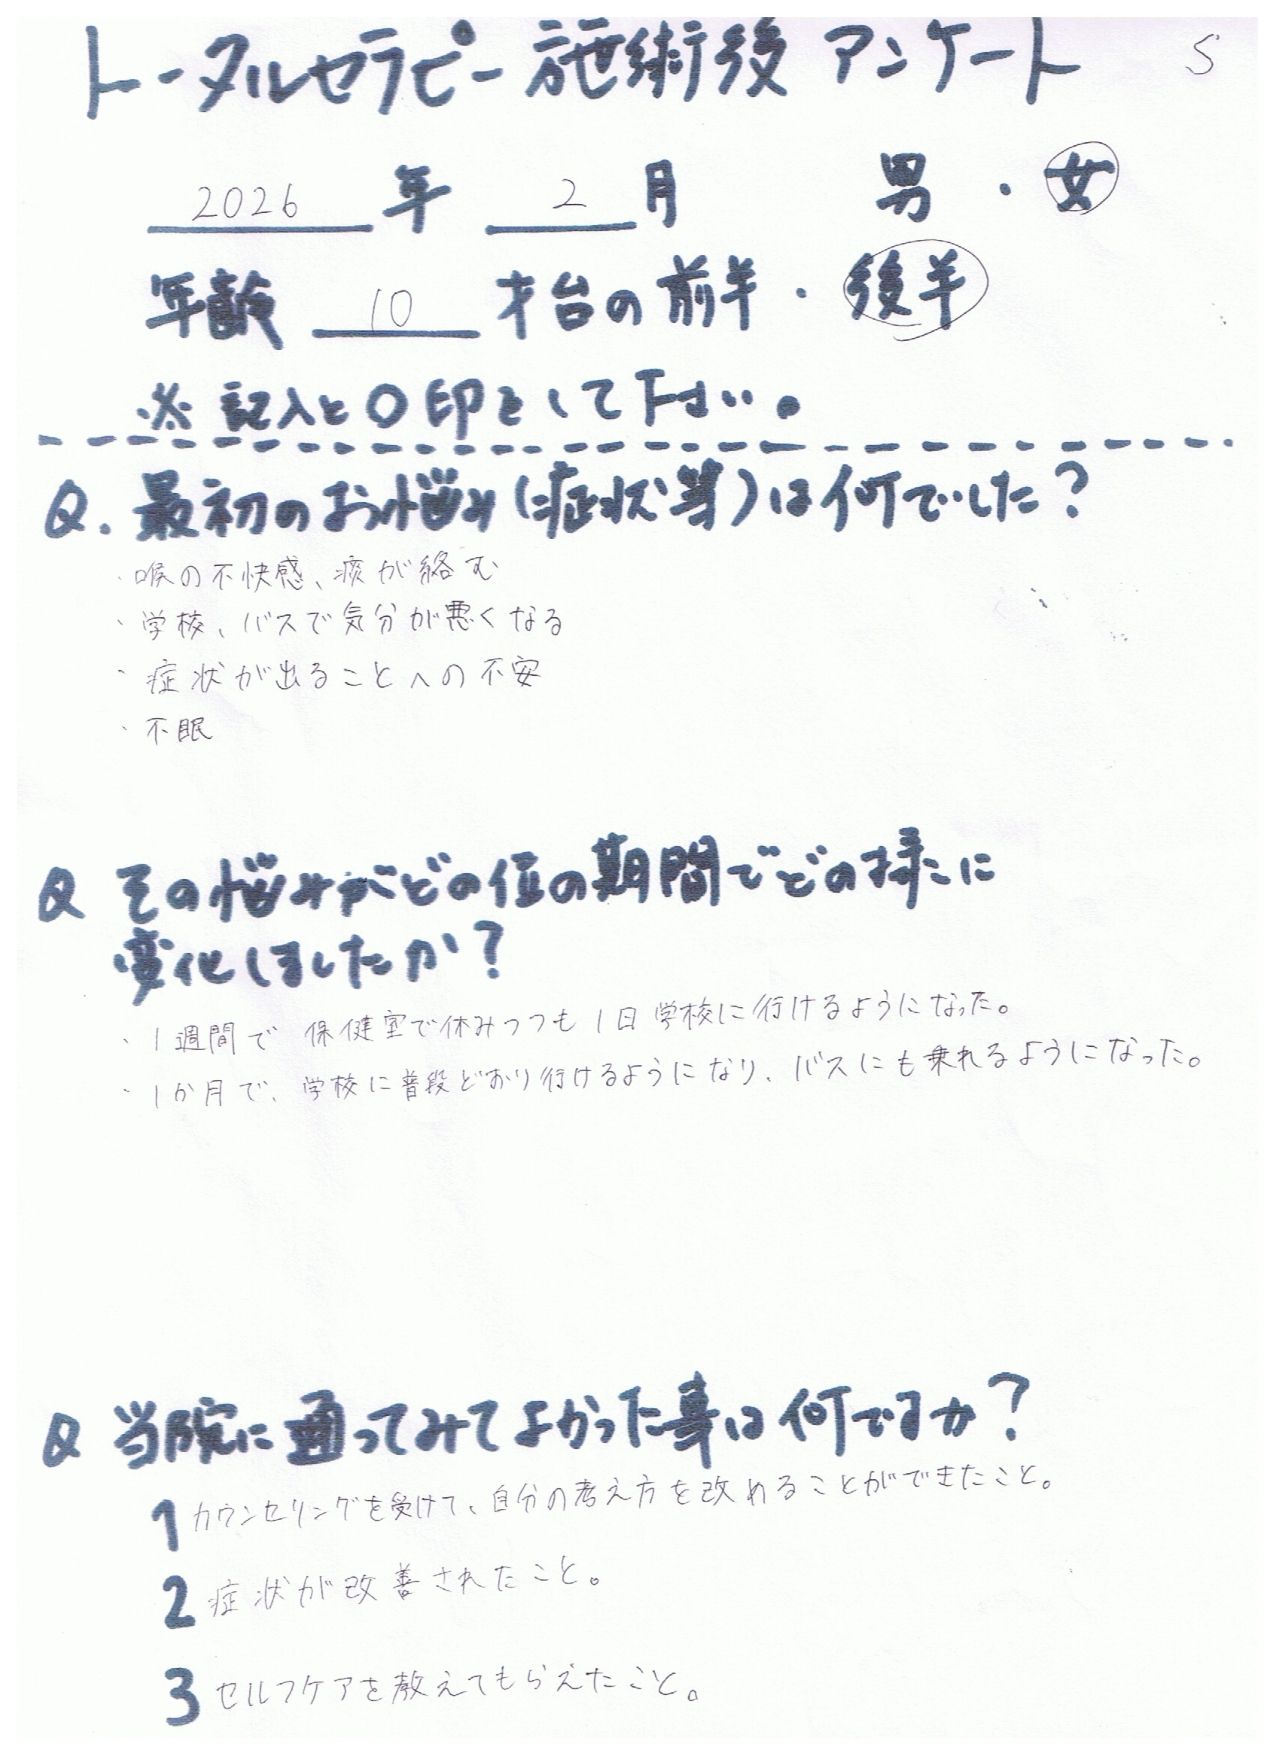 トータルセラピー施術後 アンケート S
2026 年 2 月 男 ・ 女
年齢 10 才台の前半 ・ 後半
※ 記入と〇印をして下さい。
Q. 最初のお悩み(症状等)は何でした?
・喉の不快感、痰が絡む
・学校、バスで気分が悪くなる
・症状が出ることへの不安
・不眠
Q その悩みがどの位の期間でどの様に
変化しましたか?
・1週間で 保健室で休みつつも1日学校に行けるようになった。
・1か月で、学校に普段どおり行けるようになり、バスにも乗れるようになった。
Q 当院に通ってみてよかった事は何ですか?
1 カウンセリングを受けて、自分の考え方を改めることができたこと。
2 症状が改善されたこと。
3 セルフケアを教えてもらえたこと。